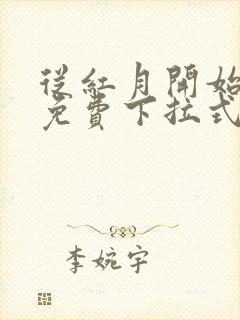 從紅月開始
免費下拉式
李婉宇